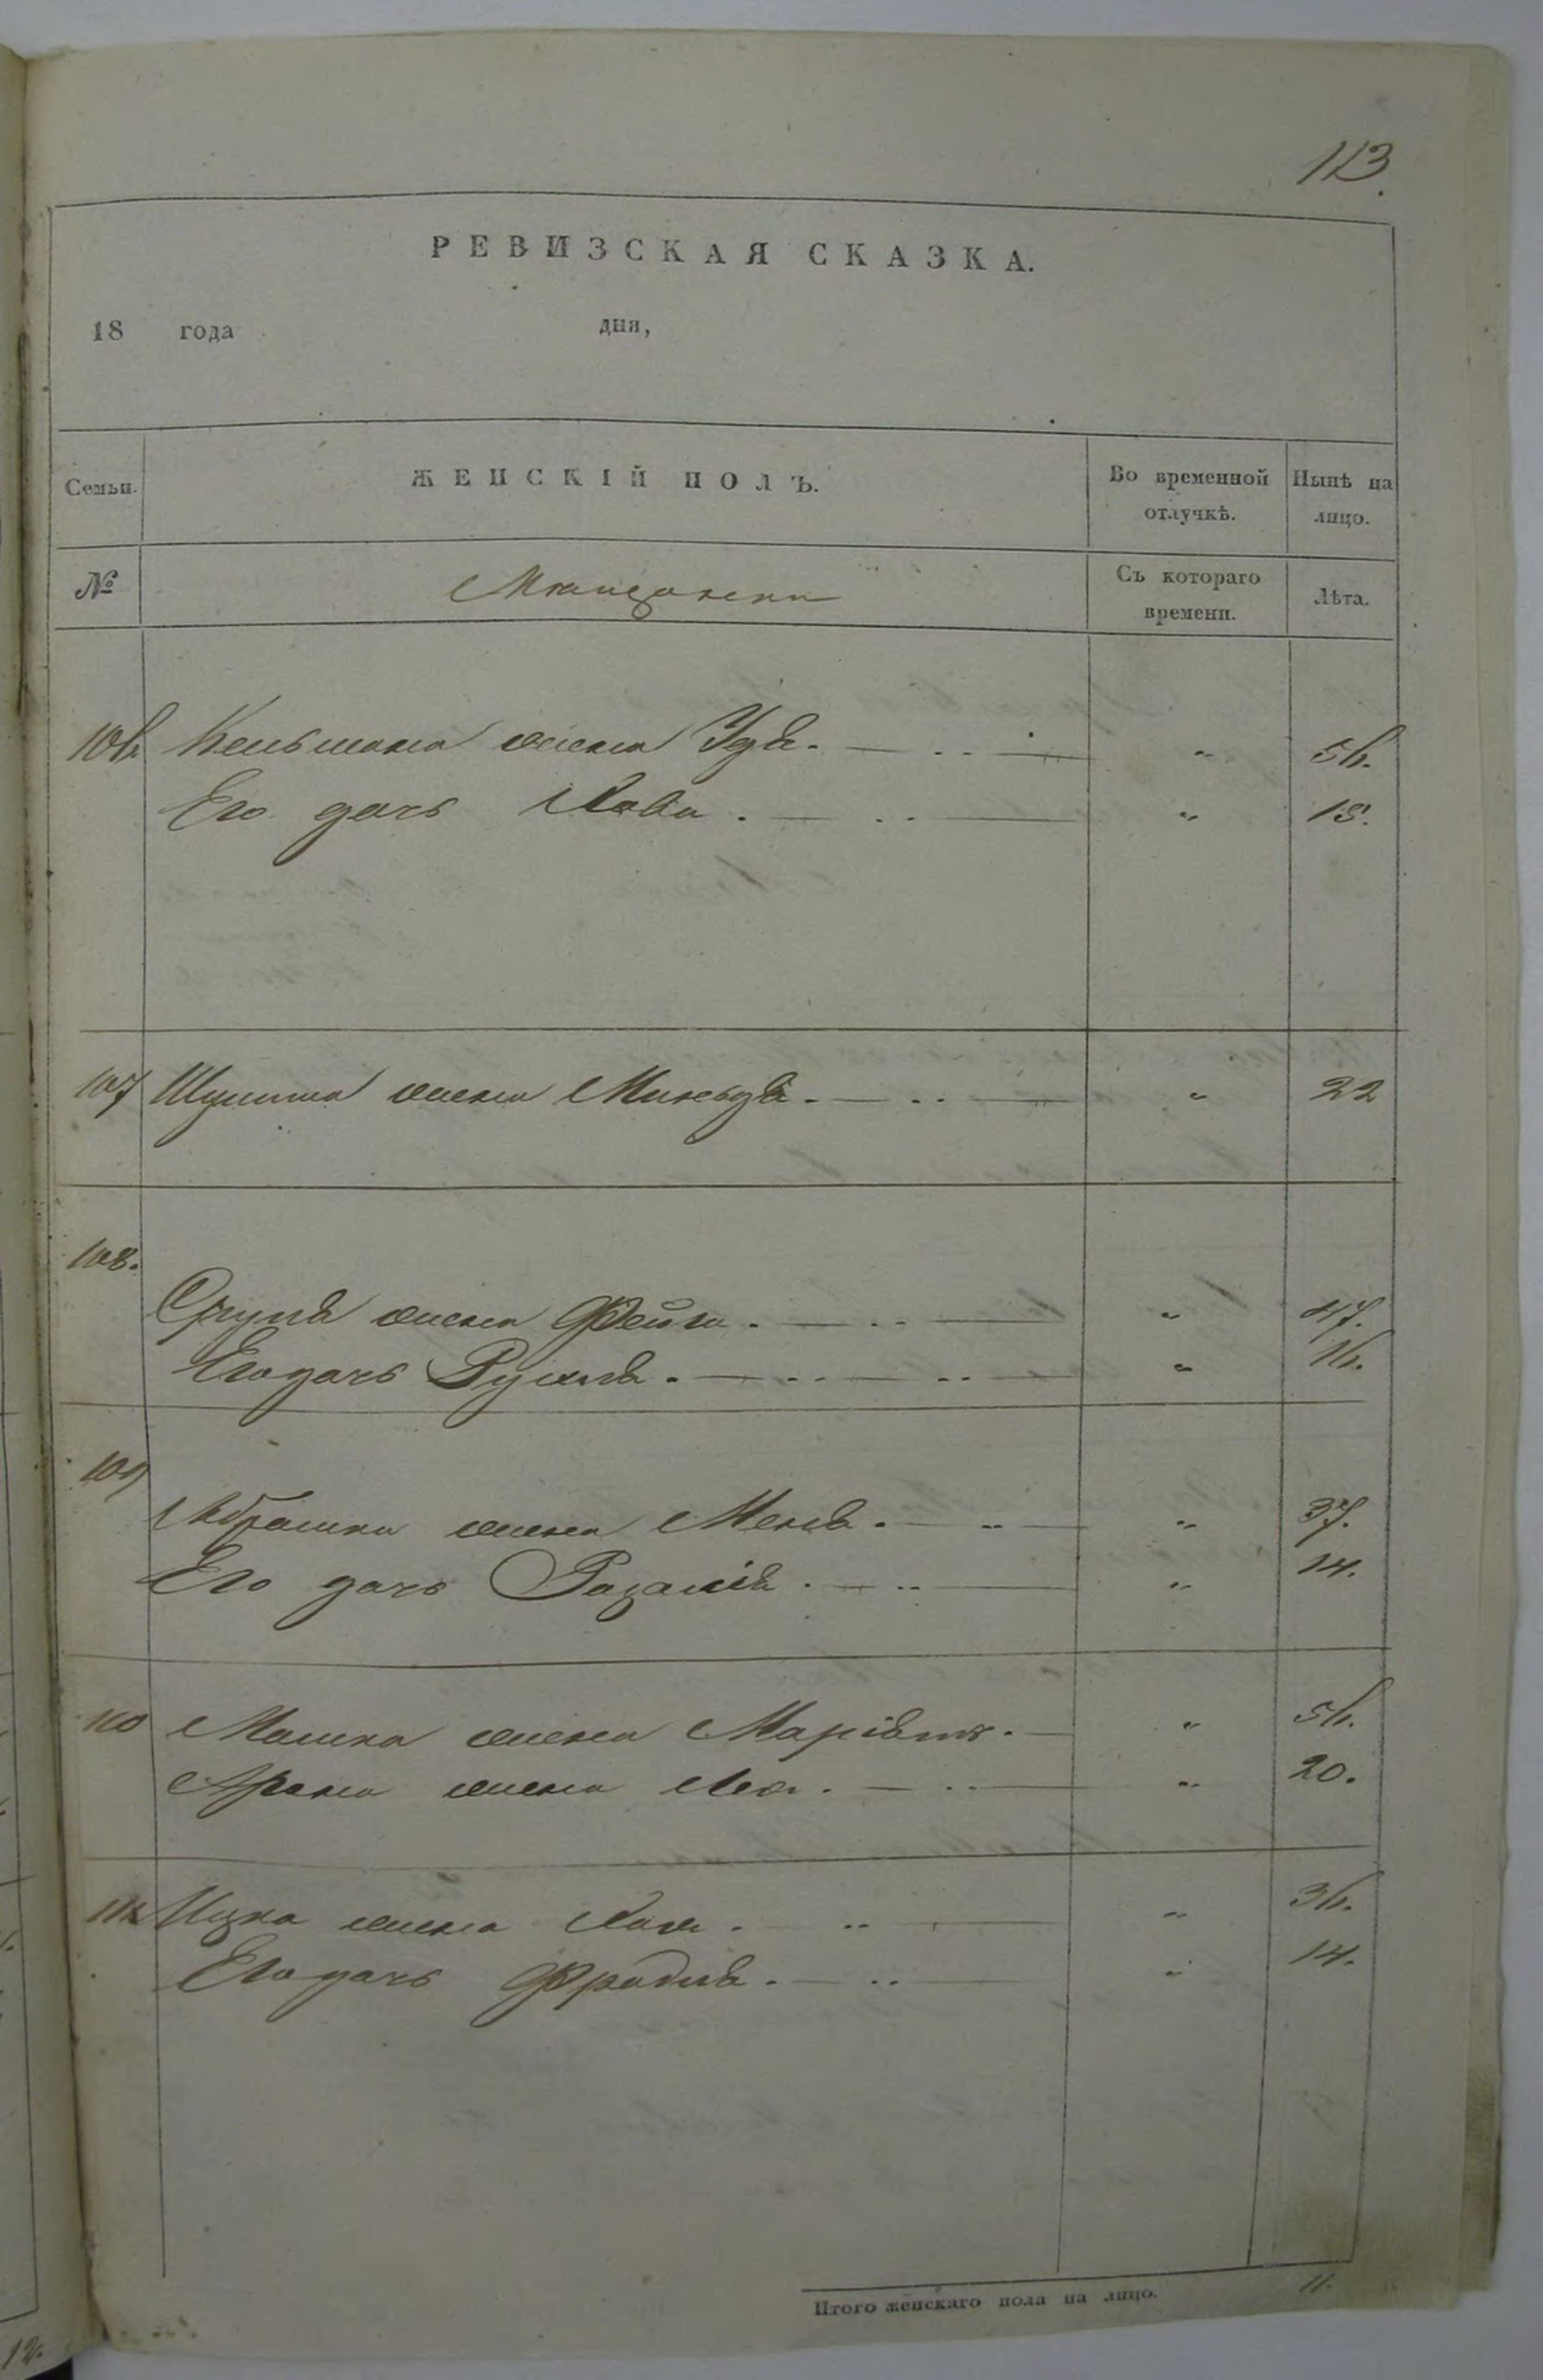 113.
РЕВИЗСКАЯ СКАЗКА.
18 года дня,
Семьи. ЖЕНСКІЙ ПОЛЪ. Во временной отлучкѣ. Нынѣ на лицо.
№ Мѣщански Съ котораго времени. Лѣта.
106. Кельмана жена Удя. „ 56.
Его дочь Хава. „ 18.
107 жена Миньдя. „ 22
108.
Сруля жена Фейга. „ 47.
Его дочь Рухля. „ 16.
109
Абрамка жена Меня. „ 37.
Его дочь „ 14.
110 Мошка жена Маріямъ. „ 56.
Арона жена Лея. „ 20.
111. Ицка жена Хая. „ 36.
Его дочь Фрадля. „ 14.
Итого женскаго пола на лицо. 11.
12.